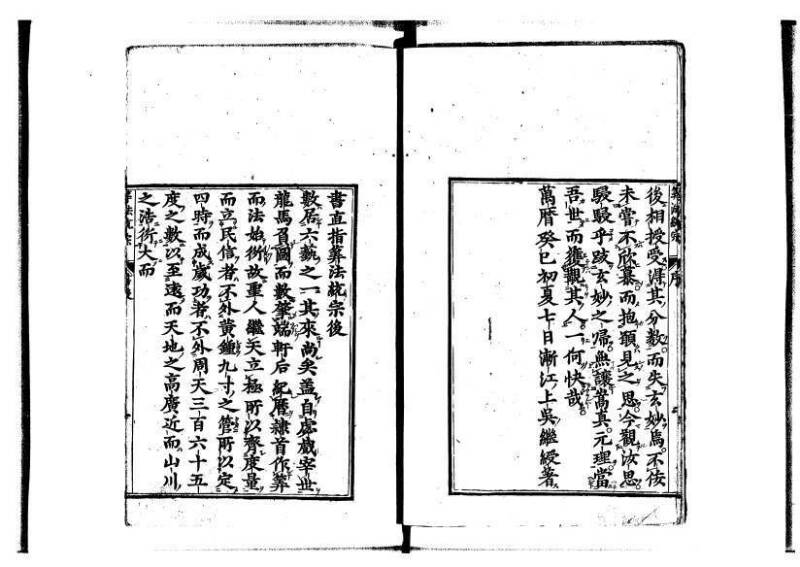 後相授受得其分數而失玄妙焉不佞
未嘗不欣慕而抱願見之思今觀汝思
駸駸乎跂玄妙之歸無讓嵩真元理當
吾世而獲覩其人一何快哉
萬曆癸巳初夏七日漸江上吳繼綬著
書直指算法統宗後
數居六藝之一其來尚矣蓋自虙戲宰世
龍馬負圖而數肇端軒后紀曆隸首作算
而法始衍故聖人繼天立極所以齊度量
而立民信者不外黃鍾九寸之管所以定
四時而成歲功者不外周天三百六十五
度之數以至遠而天地之高廣近而山川
之浩衍大而